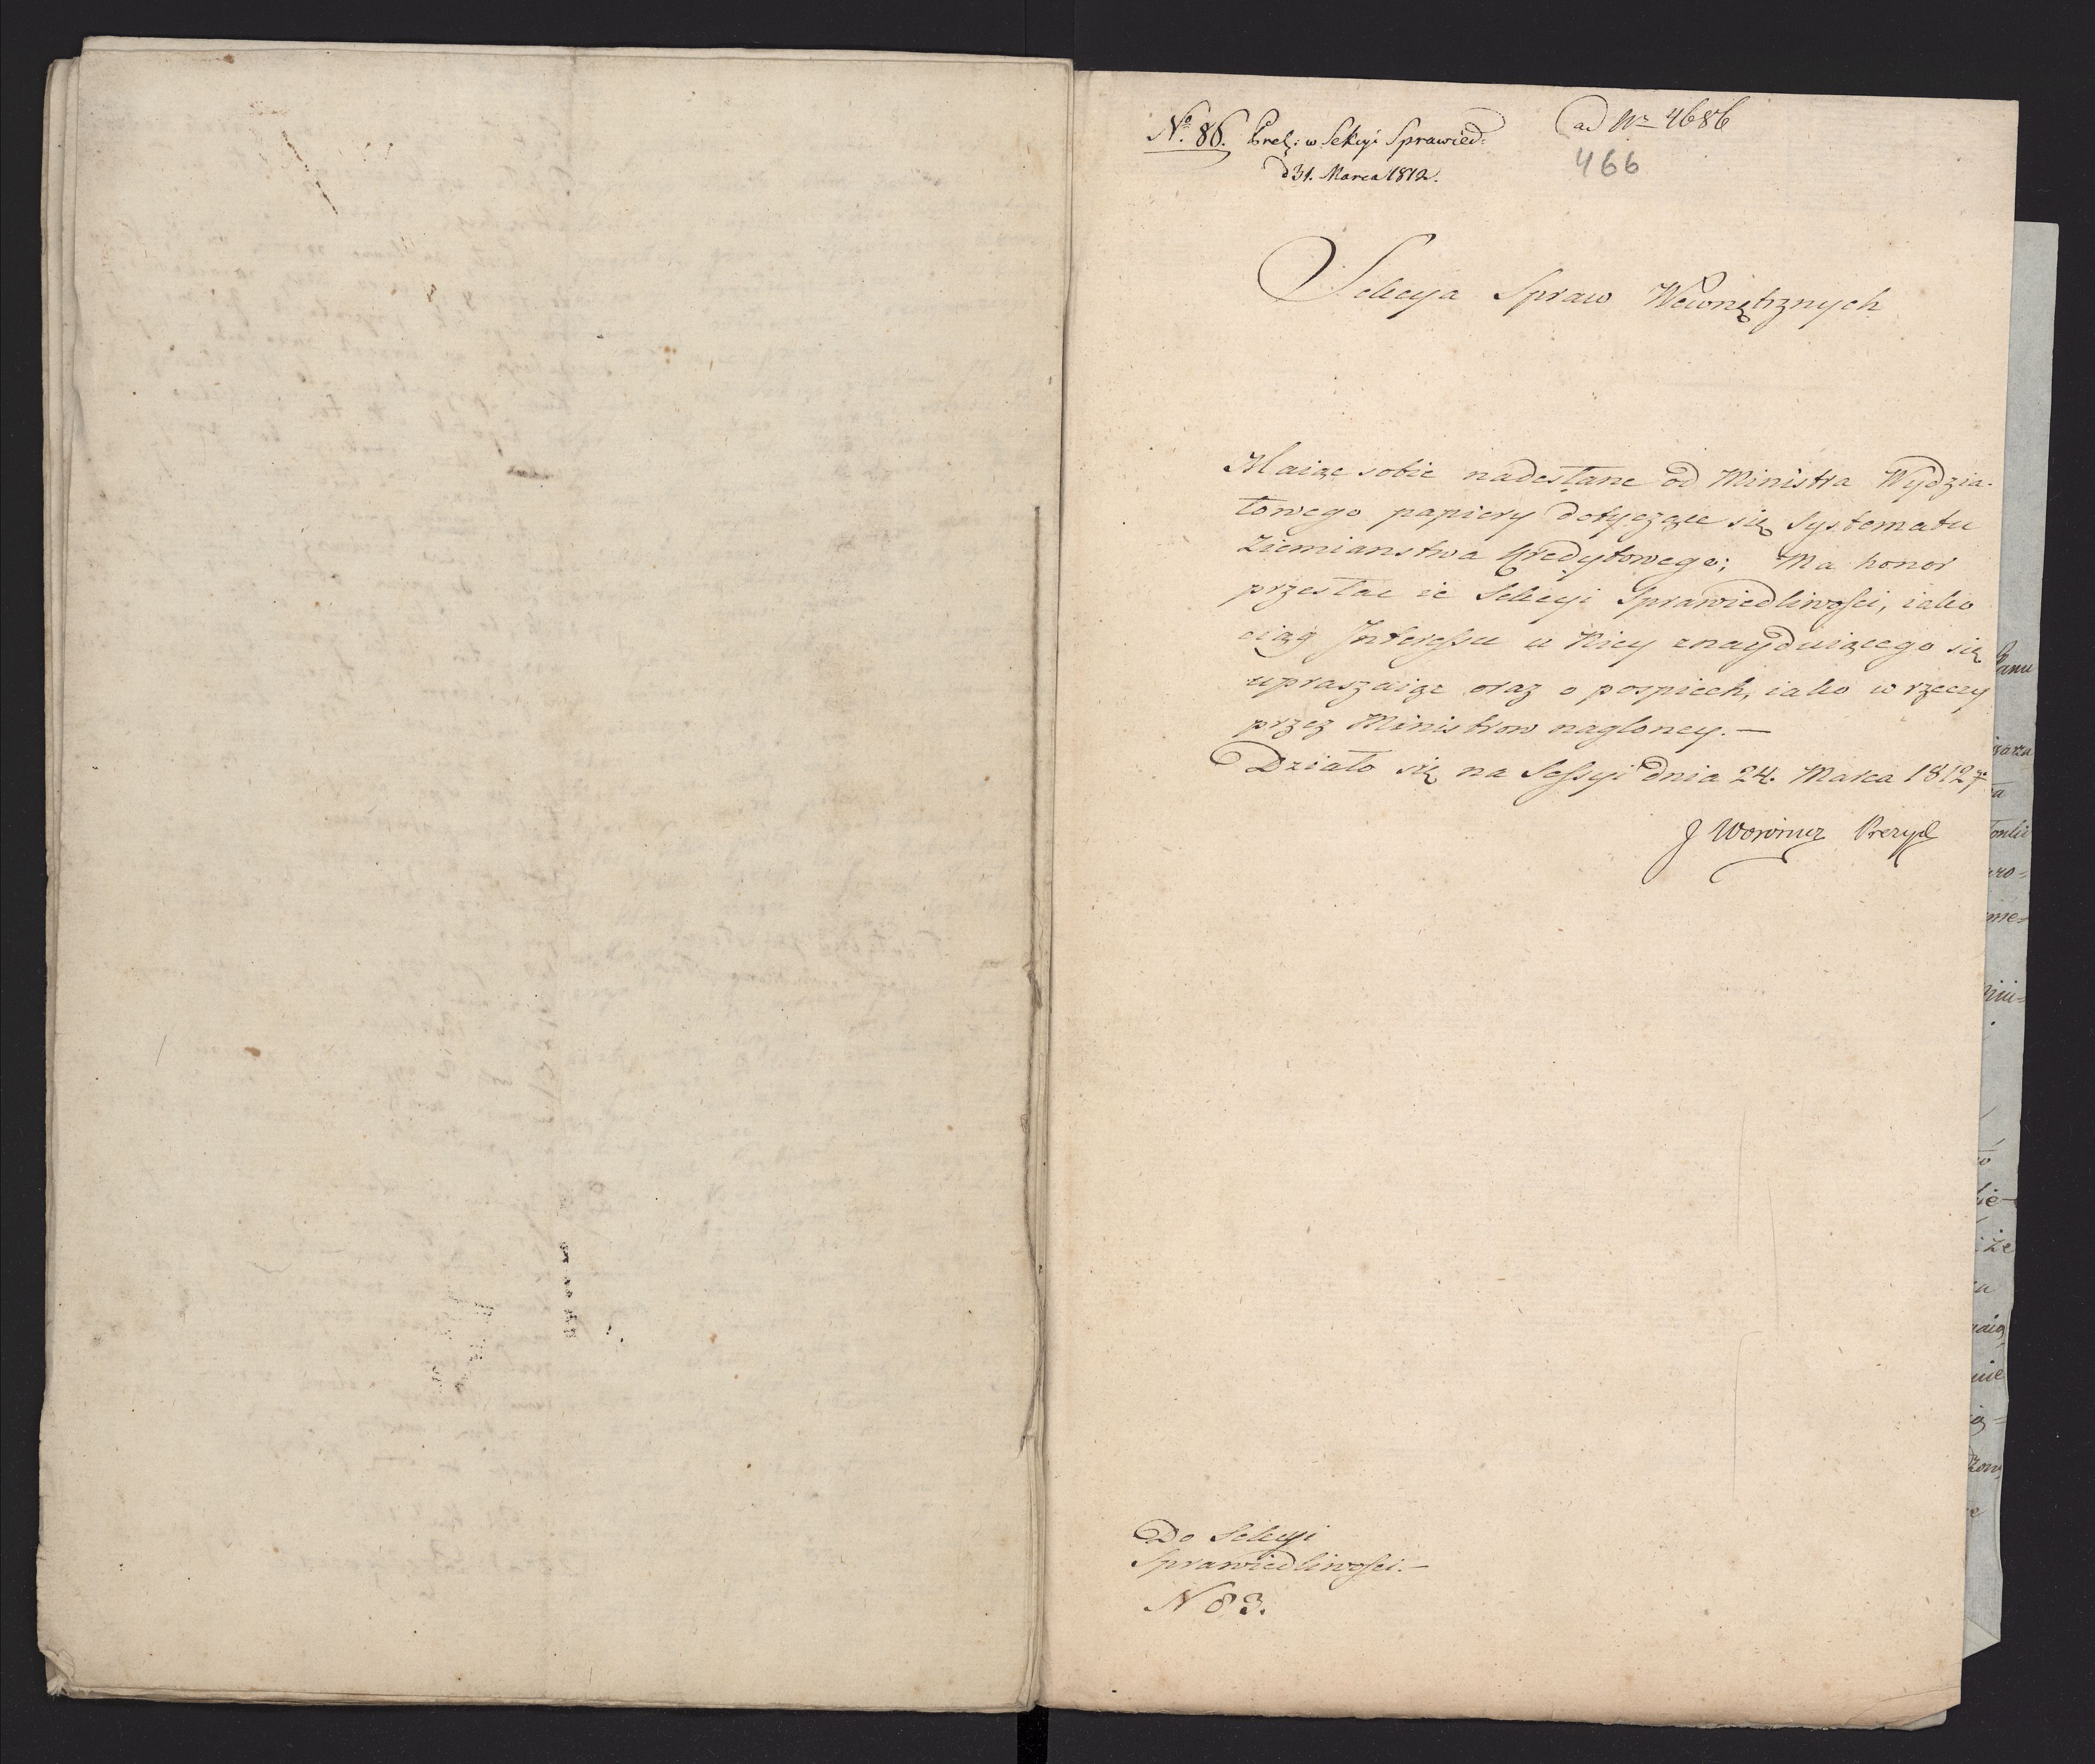 No. 86. Prez: w Sekcyi Sprawied:
d 31. Marca 1812.
ad Nr 4686
466
Sekcya Spraw Wewnętrznych
Maiąc sobie nadesłane od Ministra Wydzia-
łowego papiery dotyczące się Systematu
Ziemianstwa Kredytowego; Ma honor
przesłac ie Sekcyi Sprawiedliwości, iako
ciąg Interessu u Niey znayduiącego się
upraszaiąc oraz o pospiech, iako w rzeczy
przez Ministrow nagloney. —
Działo się na Sessyi dnia 24. Marca 1812 r.
J Woronicz Prezyd
Do Sekcyi
Sprawiedliwości. —
N 83.